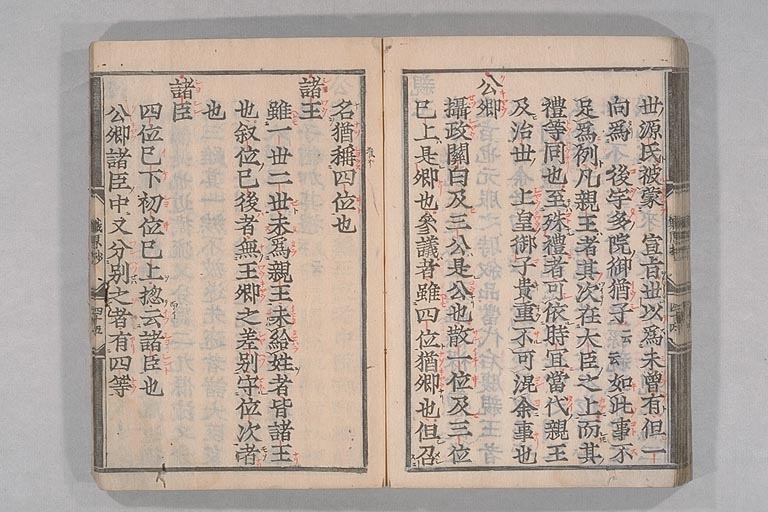 世源氏被蒙　宣旨世以爲未曾有但一
向爲　後宇多院御猶子云云如此事不
足爲例凡親王者其次在大臣之上而其
禮等同也至殊禮者可依時冝當代親王
及治世　上皇御子貴重不可混余事也
公卿
攝政關白及三公是公也散一位及三位
已上是卿也參議者雖四位猶卿也但召
名猶稱四位也
諸王
雖一世二世未爲親王未給姓者皆諸王
也叙位已後者無王卿之差別守位次者
也
諸臣
四位已下初位已上揔云諸臣也
公卿諸臣中又分別之者有四等